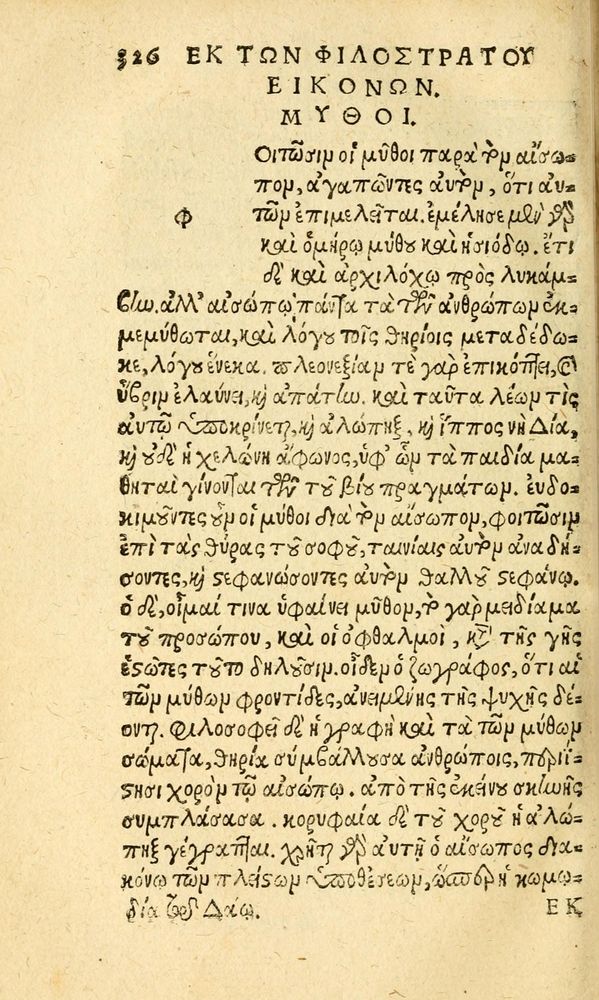 326 ΕΚ ΤΩΝ ΦΙΛΟΣΤΡΑΤΟΥ
ΕΙΚΟΝΩΝ.
ΜΥΘΟΙ.
Φοιτῶσιν οἱ μῦθοι παρὰ τὸν αἴσω-
πον, ἀγαπῶντες αὐτὸν, ὅτι αὐ-
τῶν ἐπιμελεῖται. ἐμέλησε μὲν γὰρ
καὶ ὁμήρῳ μύθου καὶ ἡσιόδῳ. ἔτι
δὲ καὶ ἀρχιλόχῳ πρὸς λυκάμ-
βην. ἀλλ' αἰσώπῳ πάντα τὰ τῶν ἀνθρώπων ἐκ-
μεμύθωται, καὶ λόγου τοῖς θηρίοις μεταδέδω-
κε, λόγου ἕνεκα. πλεονεξίαν τε γὰρ ἐπικόπτει, καὶ
ὕβριν ἐλαύνει, καὶ ἀπάτην. καὶ ταῦτα λέων τις
αὐτῷ ὑποκρίνεται, καὶ ἀλώπηξ, καὶ ἵππος νὴ Δία,
καὶ οὐδὲ ἡ χελώνη ἄφωνος, ὑφ' ὧν τὰ παιδία μα-
θηταὶ γίνονται τῶν τοῦ βίου πραγμάτων. εὐδο-
κιμοῦντες οὖν οἱ μῦθοι διὰ τὸν αἴσωπον, φοιτῶσιν
ἐπὶ τὰς θύρας τοῦ σοφοῦ, ταινίαις αὐτὸν ἀναδή-
σοντες, καὶ στεφανώσοντες αὐτὸν θαλλοῦ στεφάνῳ.
ὁ δὲ, οἶμαί τινα ὑφαίνει μῦθον, τὸ γὰρ μειδίαμα
τοῦ προσώπου, καὶ οἱ ὀφθαλμοὶ, κατὰ τῆς γῆς
ἑστῶτες τοῦτο δηλοῦσιν. οἶδεν ὁ ζωγράφος, ὅτι αἱ
τῶν μύθων φροντίδες, ἀνειμένης τῆς ψυχῆς δέ-
ονται. φιλοσοφεῖ δὲ ἡ γραφὴ καὶ τὰ τῶν μύθων
σώματα, θηρία συμβάλλουσα ἀνθρώποις, περιΐ-
στησι χορὸν τῷ αἰσώπῳ. ἀπὸ τῆς ἐκείνου σκηνῆς
συμπλάσασα. κορυφαία δὲ τοῦ χοροῦ ἡ ἀλώ-
πηξ γέγραπται. χρῆται γὰρ αὐτῇ ὁ αἴσωπος δια-
κόνῳ τῶν πλείστων ὑποθέσεων, ὥσπερ ἡ κωμῳ-
δία τῷ Δάῳ.
ΕΚ